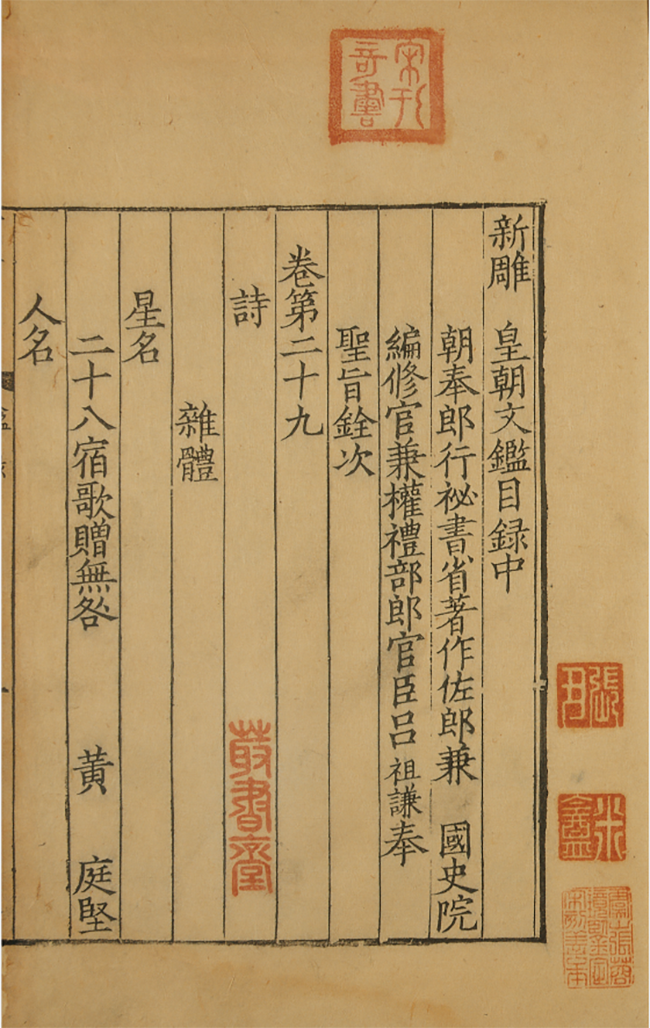 新雕　皇朝文鑑目録中
朝奉郎行祕書省著作佐郎兼　國史院
編修官兼權禮部郎官臣呂祖謙奉
聖旨銓次
卷第二十九
詩
雜體
星名
二十八宿歌贈無咎　黃　庭堅
人名
宋刊奇書